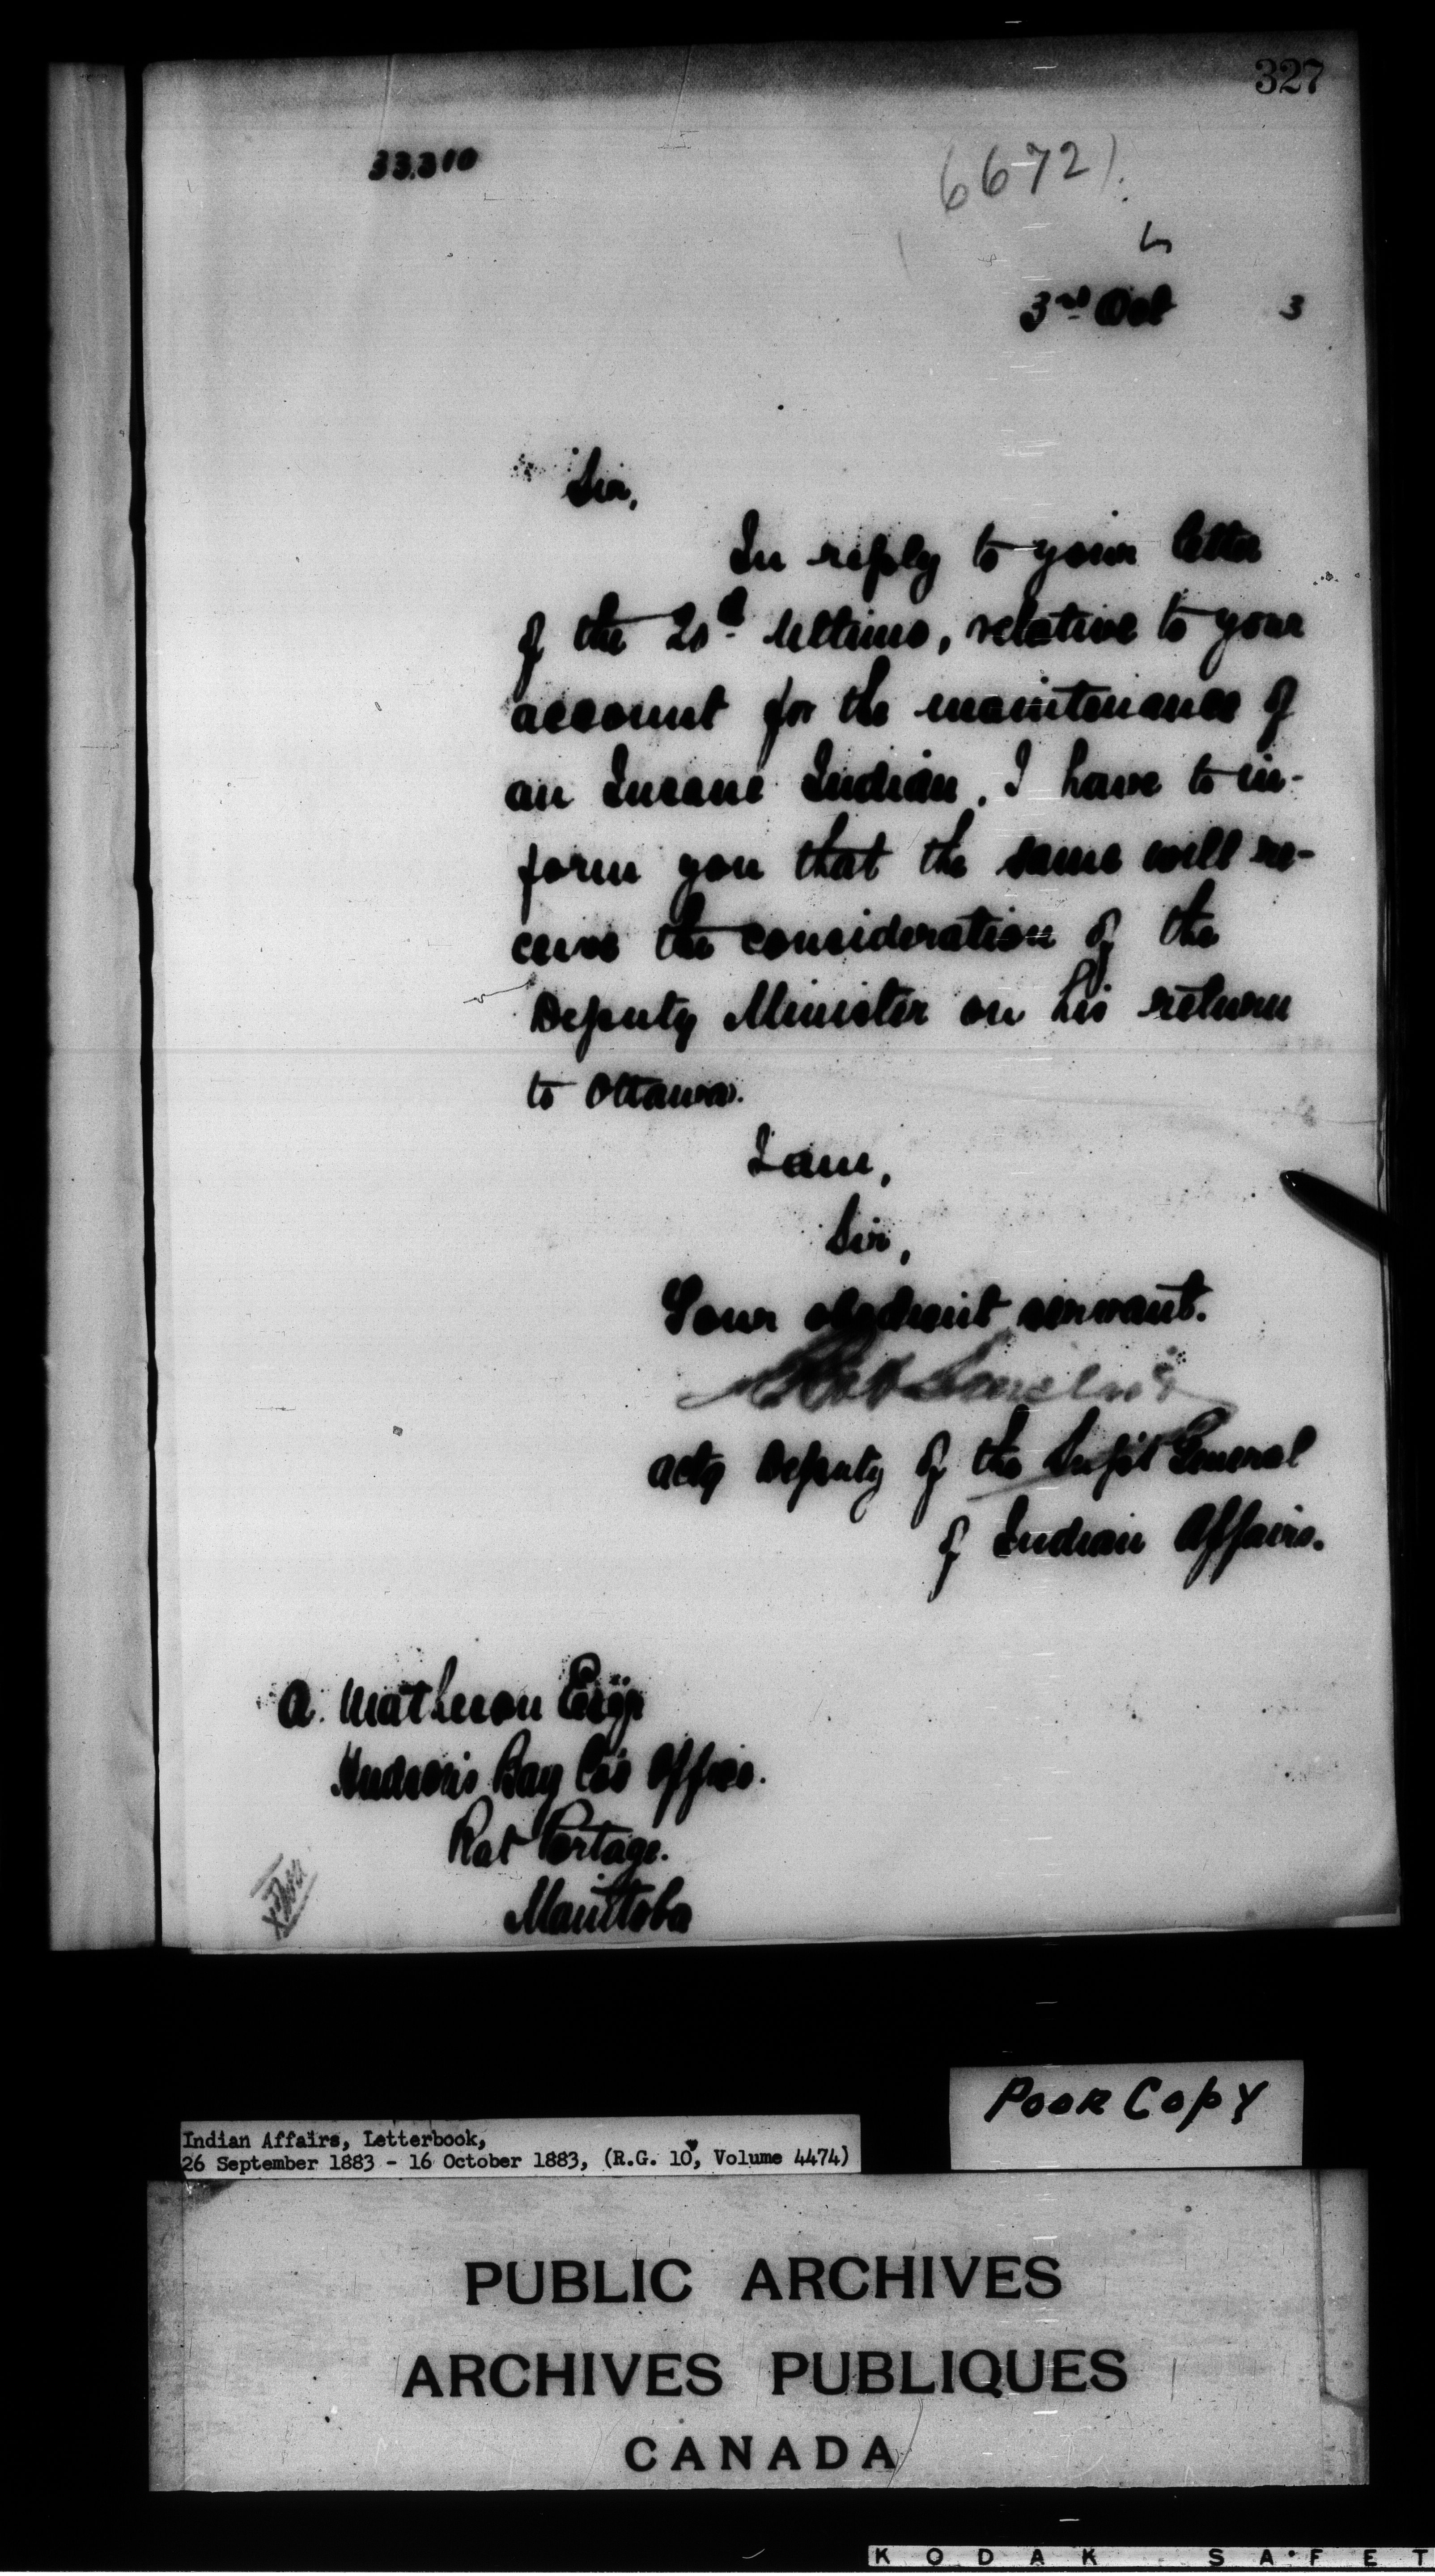 327
33.310
66721
3rd Oct 3
Sir,
In reply to your letter
of the ultimo, relative to your
account for the maintenance of
an Insane Indian, I have to in-
form you that the same will re-
ceive the consideration of the
Deputy Minister on his return
to Ottawa.
I am,
Sir,
Your obedient servant.
Robt Sinclair
actg Deputy of the Supt General
of Indian Affairs.
A. Matheson Esqr
Hudson's Bay Co's Office.
Rat Portage.
Manitoba
Poor Copy
Indian Affairs, Letterbook,
26 September 1883 - 16 October 1883, (R.G. 10, Volume 4474)
PUBLIC ARCHIVES
ARCHIVES PUBLIQUES
CANADA
KODAK SAFET